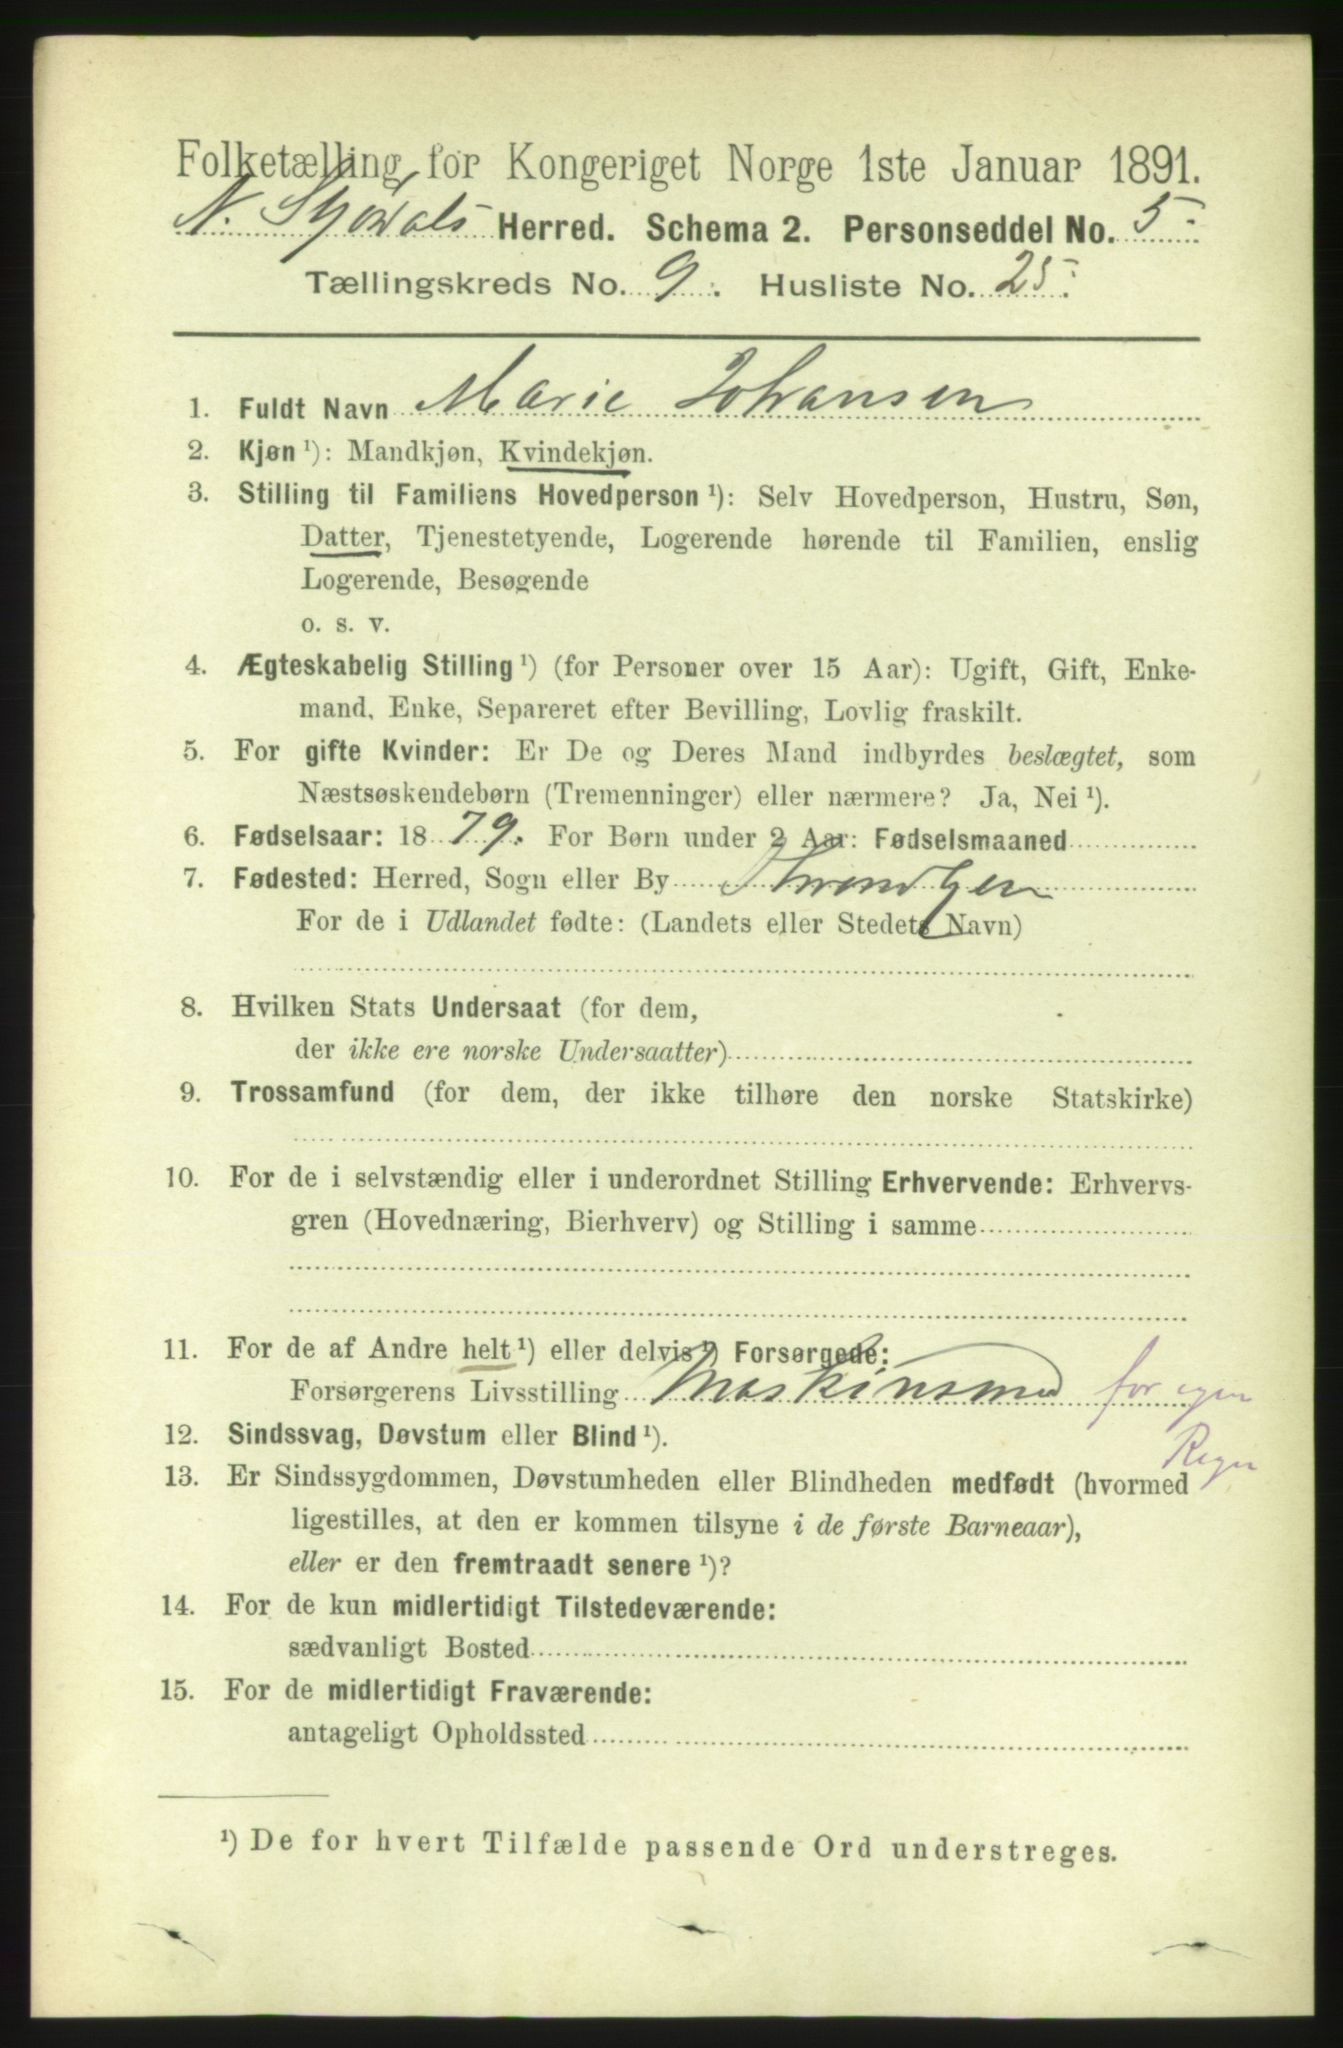 Folketælling for Kongeriget Norge 1ste Januar 1891.
N. Stjørdals Herred. Schema 2. Personseddel No. 5.
Tællingskreds No. 9. Husliste No. 25.
1. Fuldt Navn Marie Johansen
2. Kjøn ¹): Mandkjøn, Kvindekjøn.
3. Stilling til Familiens Hovedperson ¹): Selv Hovedperson, Hustru, Søn,
Datter, Tjenestetyende, Logerende hørende til Familien, enslig
Logerende, Besøgende
o. s. v.
4. Ægteskabelig Stilling ¹) (for Personer over 15 Aar): Ugift, Gift, Enke-
mand, Enke, Separeret efter Bevilling, Lovlig fraskilt.
5. For gifte Kvinder: Er De og Deres Mand indbyrdes beslægtet, som
Næstsøskendebørn (Tremenninger) eller nærmere? Ja, Nei ¹).
6. Fødselsaar: 1879. For Børn under 2 Aar: Fødselsmaaned
7. Fødested: Herred, Sogn eller By Throndhjem
For de i Udlandet fødte: (Landets eller Stedets Navn)
8. Hvilken Stats Undersaat (for dem,
der ikke ere norske Undersaatter)
9. Trossamfund (for dem, der ikke tilhøre den norske Statskirke)
10. For de i selvstændig eller i underordnet Stilling Erhvervende: Erhvervs-
gren (Hovednæring, Bierhverv) og Stilling i samme
11. For de af Andre helt ¹) eller delvis ¹) Forsørgede:
Forsørgerens Livsstilling Maskinsmed for egen
Regn
12. Sindssvag, Døvstum eller Blind ¹).
13. Er Sindssygdommen, Døvstumheden eller Blindheden medfødt (hvormed
ligestilles, at den er kommen tilsyne i de første Barneaar),
eller er den fremtraadt senere ¹)?
14. For de kun midlertidigt Tilstedeværende:
sædvanligt Bosted
15. For de midlertidigt Fraværende:
antageligt Opholdssted
¹) De for hvert Tilfælde passende Ord understreges.